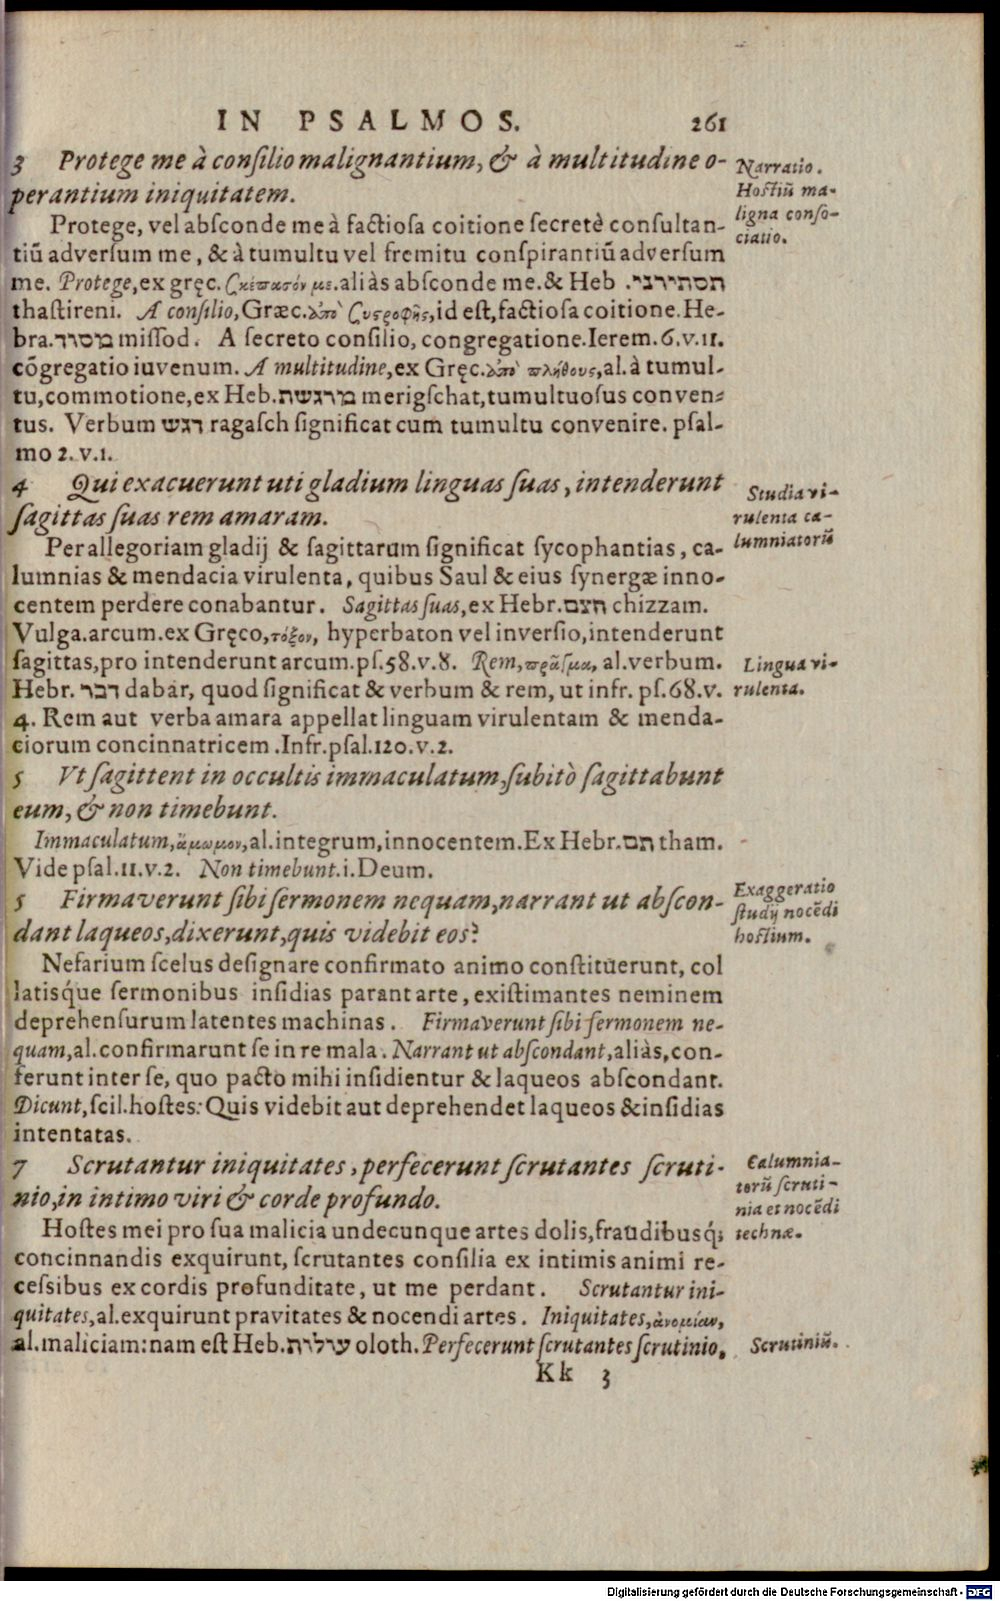 IN PSALMOS. 261
3 Protege me à conſilio malignantium, & à multitudine o-
perantium iniquitatem.
Narratio.
Hoſtiũ ma-
ligna conſo-
ciatio.
Protege, vel abſconde me à factioſa coitione ſecretè conſultan-
tiũ adverſum me, & à tumultu vel fremitu conſpirantiũ adverſum
me. Protege, ex gręc. ϛκέπασόν με. aliàs abſconde me. & Heb תסתירני.
thaſtireni. A conſilio, Græc. ἀπὸ ϛυϛροφῆς, id eſt, factioſa coitione. He-
bra. מסוד miſſod. A ſecreto conſilio, congregatione. Ierem. 6. v. 11.
cõgregatio iuvenum. A multitudine, ex Gręc. ἀπὸ πλήθους, al. à tumul-
tu, commotione, ex Heb. מרגשת merigſchat, tumultuoſus conven-
tus. Verbum רגש ragaſch ſignificat cum tumultu convenire. pſal-
mo 2. v. 1.
4 Qui exacuerunt uti gladium linguas ſuas, intenderunt
ſagittas ſuas rem amaram.
Studia vi-
rulenta ca-
lumniatorũ
Per allegoriam gladij & ſagittarum ſignificat ſycophantias, ca-
lumnias & mendacia virulenta, quibus Saul & eius ſynergæ inno-
centem perdere conabantur. Sagittas ſuas, ex Hebr. חצם chizzam.
Vulga. arcum. ex Gręco, τόξον, hyperbaton vel inverſio, intenderunt
ſagittas, pro intenderunt arcum. pſ. 58. v. 8. Rem, πρᾶγμα, al. verbum.
Hebr. דבר dabar, quod ſignificat & verbum & rem, ut infr. pſ. 68. v.
4. Rem aut verba amara appellat linguam virulentam & menda-
ciorum concinnatricem. Infr. pſal. 120. v. 2.
Lingua vi-
rulenta.
5 Vt ſagittent in occultis immaculatum, ſubitò ſagittabunt
eum, & non timebunt.
Immaculatum, ἄμωμον, al. integrum, innocentem. Ex Hebr. תם tham.
Vide pſal. 11. v. 2. Non timebunt. i. Deum.
5 Firmaverunt ſibi ſermonem nequam, narrant ut abſcon-
dant laqueos, dixerunt, quis videbit eos?
Exaggeratio
ſtudij nocẽdi
hoſtium.
Nefarium ſcelus deſignare confirmato animo conſtituerunt, col
latisq́ue ſermonibus inſidias parant arte, exiſtimantes neminem
deprehenſurum latentes machinas. Firmaverunt ſibi ſermonem ne-
quam, al. confirmarunt ſe in re mala. Narrant ut abſcondant, aliàs, con-
ferunt inter ſe, quo pacto mihi inſidientur & laqueos abſcondant.
Dicunt, ſcil. hoſtes: Quis videbit aut deprehendet laqueos & inſidias
intentatas.
7 Scrutantur iniquitates, perfecerunt ſcrutantes ſcruti-
nio, in intimo viri & corde profundo.
Calumnia-
torũ ſcruti-
nia et nocẽdi
technæ.
Hoſtes mei pro ſua malicia undecunque artes dolis, fraudibusq́;
concinnandis exquirunt, ſcrutantes conſilia ex intimis animi re-
ceſsibus ex cordis profunditate, ut me perdant. Scrutantur ini-
quitates, al. exquirunt pravitates & nocendi artes. Iniquitates, ἀνομίαν,
al. maliciam: nam eſt Heb. עולות oloth. Perfecerunt ſcrutantes ſcrutinio.
Scrutiniũ.
Kk 3
Digitalisierung gefördert durch die Deutsche Forschungsgemeinschaft - DFG